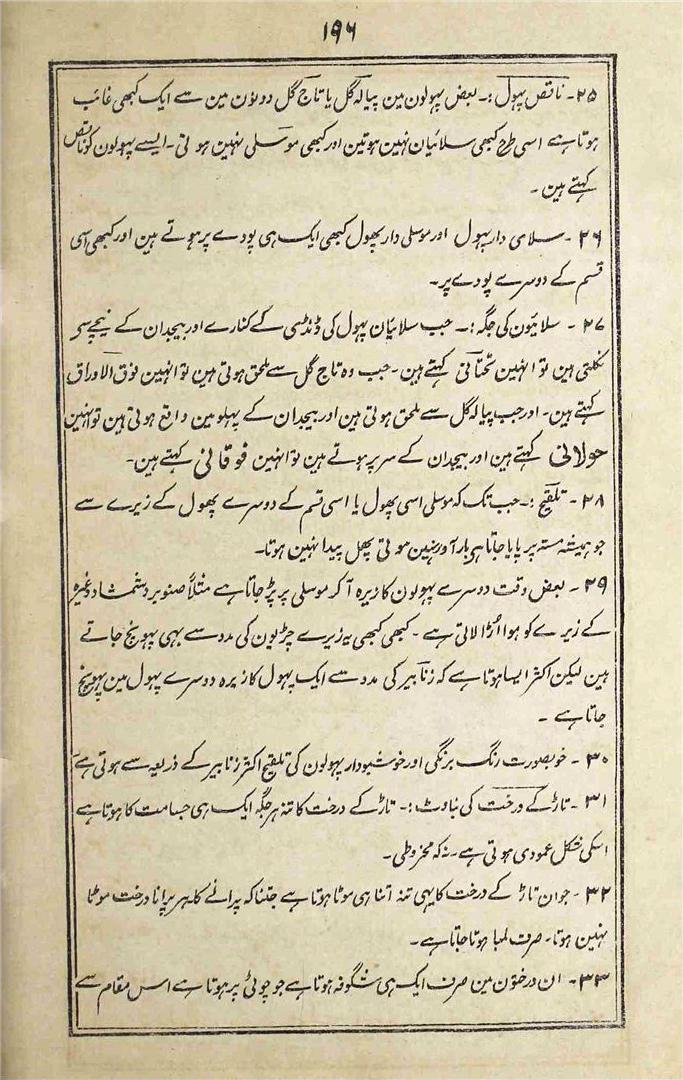 ۱۹۶
۲۵۔ ناقص پہول :۔ بعض پہولون مین پیالہ گل یا تاج گل دونون مین سے ایک کبھی غائب
ہوتا ہے اسی طرح کبھی سلائیان نہین ہوتین اور کبھی موسلی نہین ہوتی۔ ایسے پہولون کو ناقص
کہتے ہین ۔
۲۶ ۔ سلامی دار پہول اور موسلی دار پھول کبھی ایک ہی پودے پر ہوتے ہین اور کبھی اسی
قسم کے دوسرے پودے پر۔
۲۷ ۔ سلائیون کی جگہ :۔ جب سلائیان پہول کی ڈنڈی کے کنارے اور بیجدان کے نیچے سی
نکلتی ہین تو انہین تحتانی کہتے ہین۔ جب وہ تاج گل سے ملحق ہوتی ہین تو انہین فوق الاوراق
کہتے ہین۔ اور جب پیالہ گل سے ملحق ہوتی ہین اور بیجدان کے پہلو مین واقع ہوتی ہین تو انہین
حولانی کہتے ہین اور بیجدان کے سر پر ہوتے ہین تو انہین فوقانی کہتے ہین۔
۲۸ ۔ تلقیح :۔ جب تک کہ موسلی اسی پھول یا اسی قسم کے دوسرے پھول کے زیرے سے
جو ہمیشہ مستہ پر پایا جاتا ہی بار آور نہین ہوتی پھل پیدا نہین ہوتا۔
۲۹ ۔ بعض وقت دوسرے پہولون کا زیرہ آ کر موسلی پر پڑ جاتا ہے مثلاً صنوبر و شمشاد وغیرہ
کے زیرے کو ہوا اُڑا لاتی ہے ۔ کبھی کبھی یہ زیرے چڑیون کی مدد سے بہی پہونچ جاتے
ہین لیکن اکثر ایسا ہوتا ہے کہ زنابیر کی مدد سے ایک پہول کا زیرہ دوسرے پہول مین پہونچ
جاتا ہے ۔
۳۰ ۔ خوبصورت رنگ برنگی اور خوشبودار پہولون کی تلقیح اکثر زنابیر کے ذریعہ سے ہوتی ہے
۳۱ ۔ تاڑ کے درخت کی بناوٹ :۔ تاڑ کے درخت کا تنہ ہر جگہ ایک ہی جسامت کا ہوتا ہے
اسکی شکل عمودی ہوتی ہے۔ نہ کہ مخروطی۔
۳۲ ۔ جوان تاڑ کے درخت کا یہی تنہ اتنا ہی موٹا ہوتا ہے جتنا کہ پرانے کا۔ پرانا درخت موٹا
نہین ہوتا۔ صرف لمبا ہوتا جاتا ہے۔
۳۳ ۔ ان درختون مین صرف ایک ہی شگوفہ ہوتا ہے جو چوٹی پر ہوتا ہے اس مقام سے